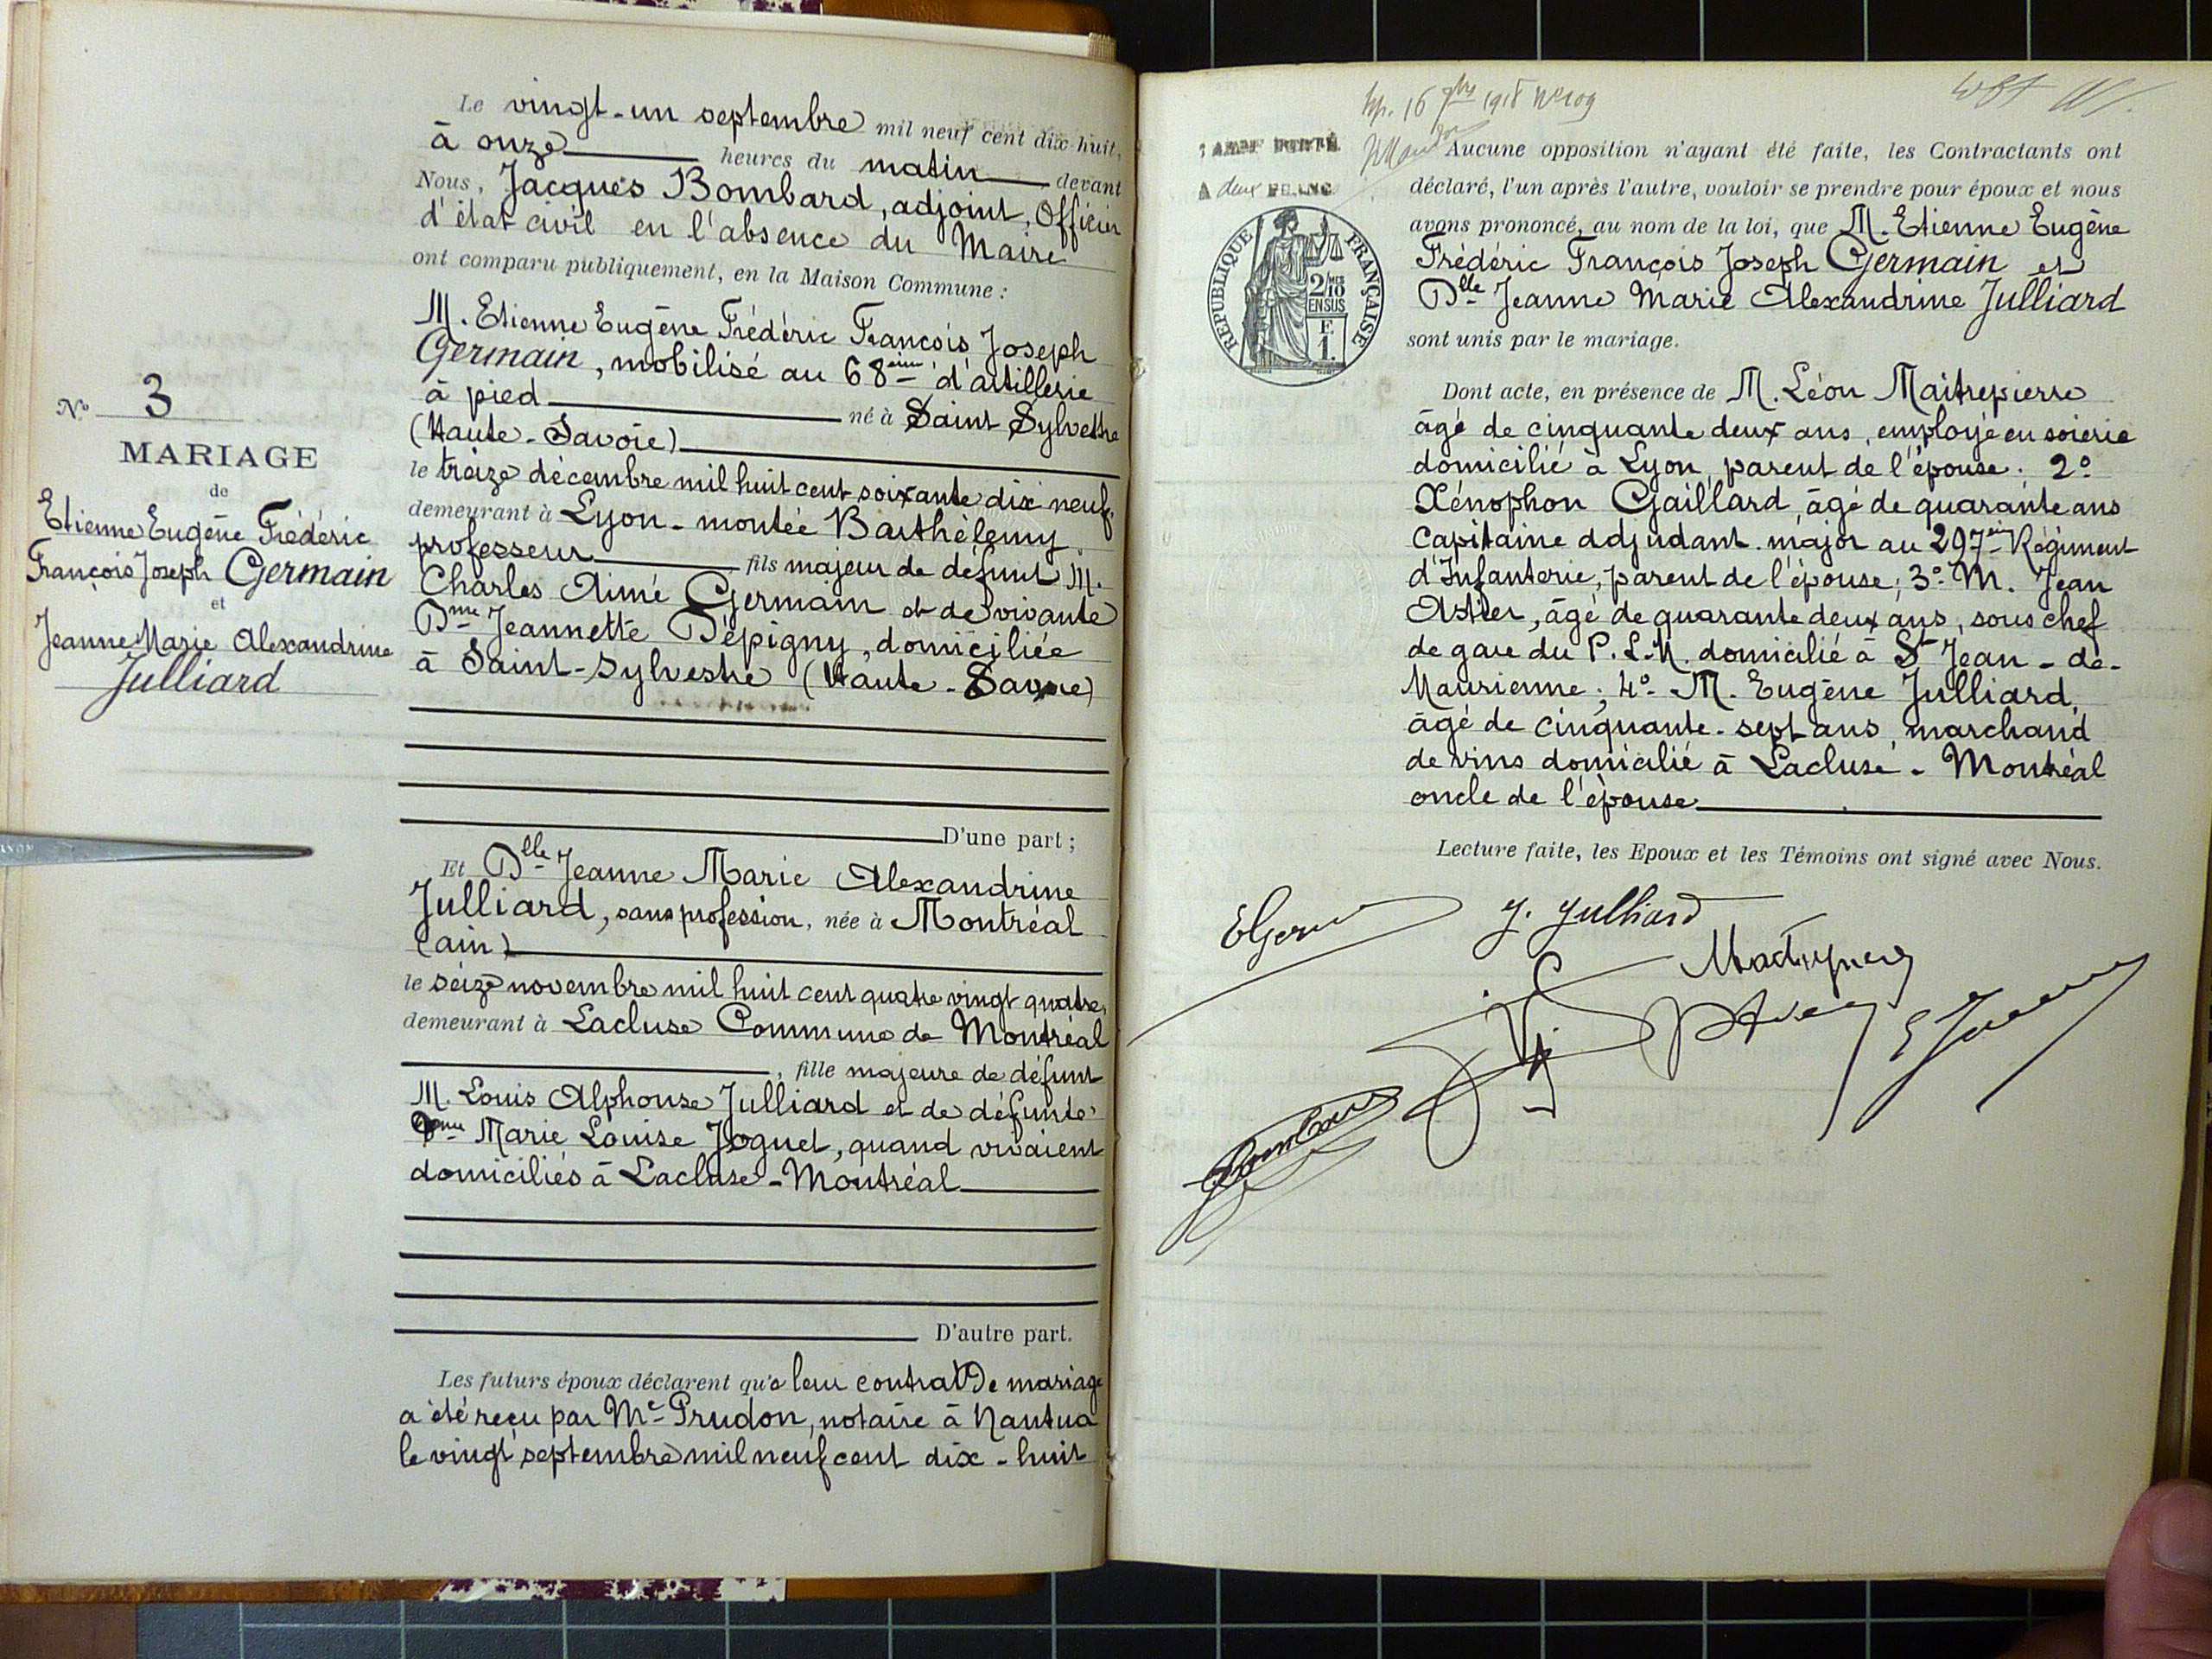 Le vingt-un septembre mil neuf cent dix-huit,
à onze heures du matin devant
Nous, Jacques Bombard, adjoint, Officier
d'état civil en l'absence du Maire
ont comparu publiquement, en la Maison Commune :
M. Etienne Eugène Frédéric François Joseph
Germain, mobilisé au 68ème d'artillerie
à pied né à Saint Sylvestre
(Haute-Savoie)
le treize décembre mil huit cent soixante dix neuf,
demeurant à Lyon - montée Barthélemy
professeur fils majeur de défunt M.
Charles Aimé Germain et de vivante
Dme Jeannette Dépigny, domiciliée
à Saint-Sylvestre (Haute-Savoie)
N° 3
MARIAGE
de
Etienne Eugène Frédéric
François Joseph Germain
et
Jeanne Marie Alexandrine
Julliard
D'une part ;
Et Dlle Jeanne Marie Alexandrine
Julliard, sans profession, née à Montréal
(ain)
le seize novembre mil huit cent quatre vingt quatre,
demeurant à Lacluse Commune de Montréal
, fille majeure de défunt
M. Louis Alphonse Julliard et de défunte
Dme Marie Louise Joguet, quand vivaient
domiciliés à Lacluse-Montréal
D'autre part.
Les futurs époux déclarent que leur contrat De mariage
a été reçu par Me Prudon, notaire à Nantua
le vingt septembre mil neuf cent dix-huit
16 1918 N° 109
à deux FRANC
RÉPUBLIQUE FRANÇAISE
2/10
EN SUS
F.
1.
Aucune opposition n'ayant été faite, les Contractants ont
déclaré, l'un après l'autre, vouloir se prendre pour époux et nous
avons prononcé, au nom de la loi, que M. Etienne Eugène
Frédéric François Joseph Germain et
Dlle Jeanne Marie Alexandrine Julliard
sont unis par le mariage.
Dont acte, en présence de M. Léon Maitrepierre
âgé de cinquante deux ans, employé en soierie
domicilié à Lyon, parent de l'épouse. 2°
Xénophon Gaillard, âgé de quarante ans
Capitaine adjudant-major au 297e Régiment
d'Infanterie, parent de l'épouse ; 3° M. Jean
Astier, âgé de quarante deux ans, sous chef
de gare du P.L.M. domicilié à St Jean-de-
Maurienne ; 4° M. Eugène Julliard,
âgé de cinquante-sept ans, marchand
de vins domicilié à Lacluse-Montréal
oncle de l'épouse
Lecture faite, les Epoux et les Témoins ont signé avec Nous.
J. Julliard